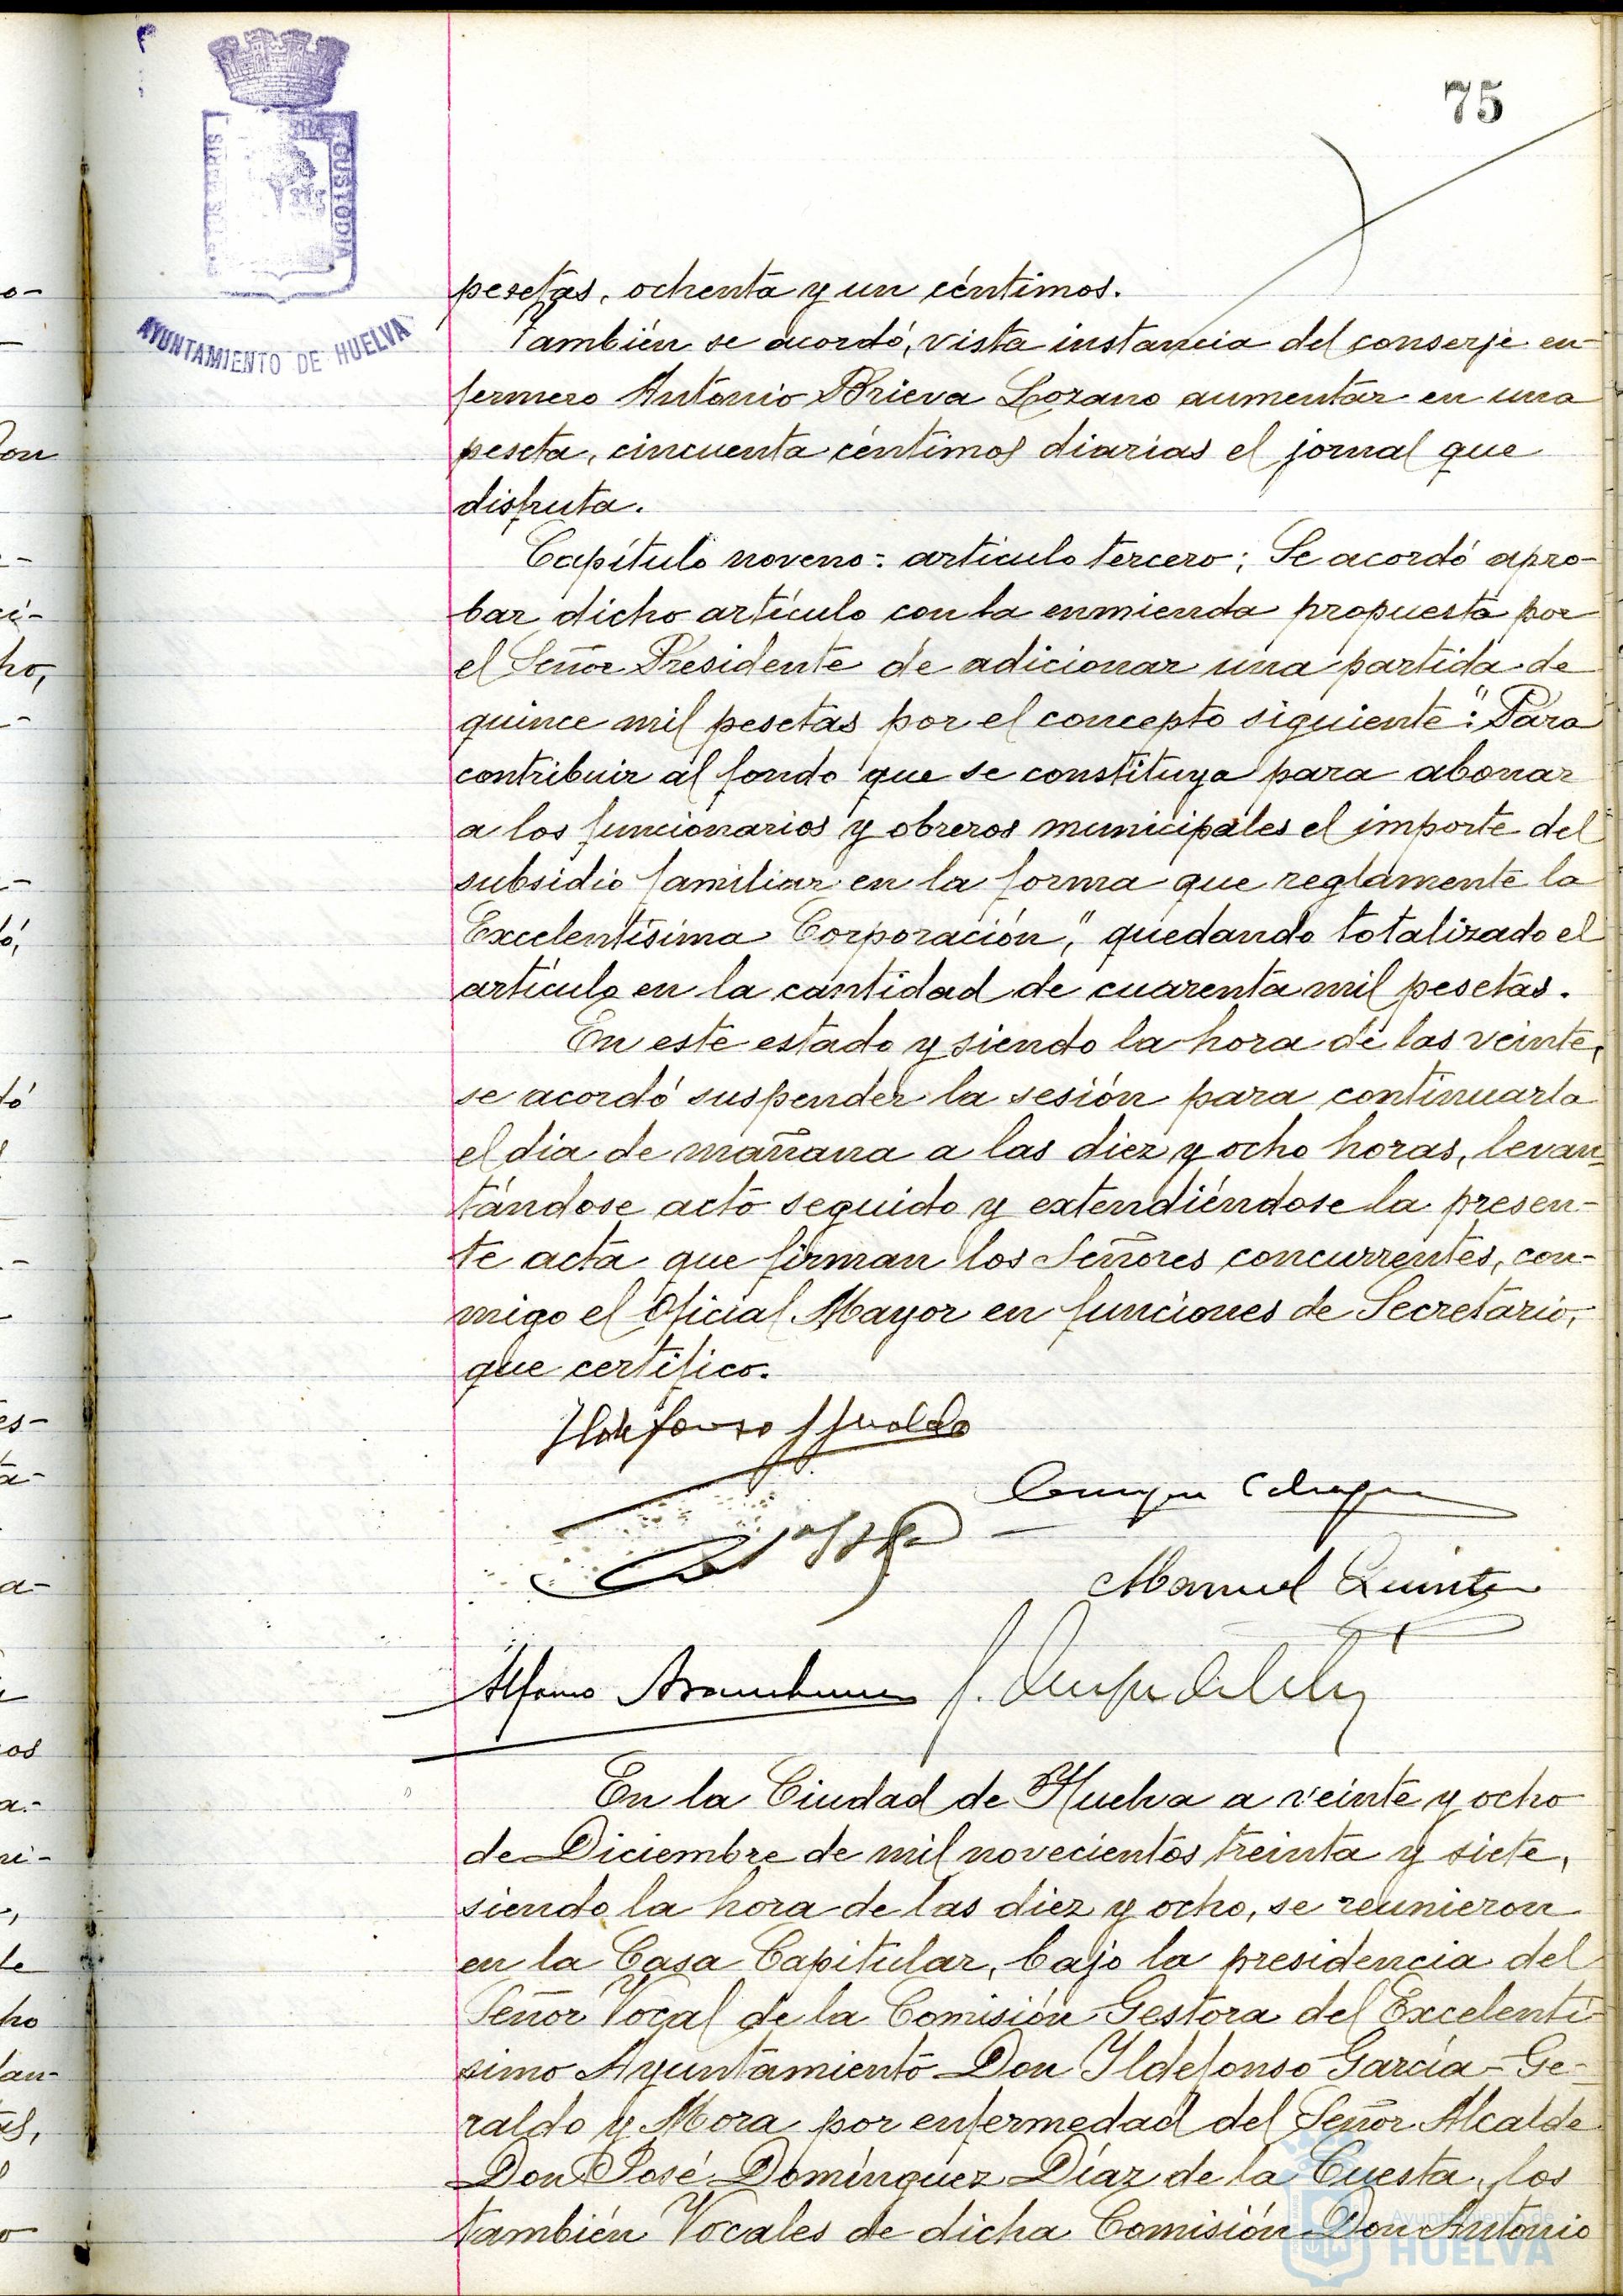 75
CUSTODIA
AYUNTAMIENTO DE HUELVA
pesetas, ochenta y un céntimos.
También se acordó, vista instancia del conserje en-
fermero Antonio Brieva Lozano aumentar en una
peseta, cincuenta céntimos diarias el jornal que
disfruta.
Capítulo noveno: artículo tercero; Se acordó apro-
bar dicho artículo con la enmienda propuesta por
el Señor Presidente de adicionar una partida de
quince mil pesetas por el concepto siguiente: "Para
contribuir al fondo que se constituya para abonar
a los funcionarios y obreros municipales el importe del
subsidio familiar en la forma que reglamente la
Excelentísima Corporación", quedando totalizado el
artículo en la cantidad de cuarenta mil pesetas.
En este estado y siendo la hora de las veinte,
se acordó suspender la sesión para continuarla
el dia de mañana a las diez y ocho horas, levan-
tándose acto seguido y extendiéndose la presen-
te acta que firman los Señores concurrentes, con-
migo el Oficial Mayor en funciones de Secretario,
que certifico.
Ildefonso
Manuel Quintero
Alfonso Aramburu
En la Ciudad de Huelva a veinte y ocho
de Diciembre de mil novecientos treinta y siete,
siendo la hora de las diez y ocho, se reunieron
en la Casa Capitular, bajo la presidencia del
Señor Vocal de la Comisión Gestora del Excelentí-
simo Ayuntamiento Don Ildefonso García-Ge-
raldo y Mora por enfermedad del Señor Alcalde
Don José Domínguez Díaz de la Cuesta, los
también Vocales de dicha Comisión Don Antonio
Ayuntamiento de
HUELVA